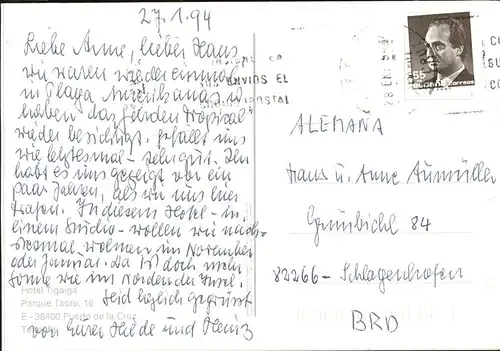 27.1.94
Liebe Anne, lieber Hans
wir waren wieder einmal
in Playa Amerikanas u.
haben das "Jehden Tropical"
wieder besichtigt. Gefällt uns
wie letztesmal - sehr gut. Ihr
habt es uns gezeigt vor ein
paar Jahren, als wir uns hier
trafen. In diesem Hotel - in
einem Studio - wollen wir nach-
stesmal wohnen im November
oder Januar. Da ist doch mehr
Sonne wie im Norden der Insel.
Seid herzlich gegrüsst
von Eurer Hilde und Heinz
Hotel Tigaiga
Parque Taoro, 16
E - 38400 Puerto de la Cruz
ENVIOS EL
POSTAL
28 ENE
55
ESPAÑA correos
ALEMANA
Hans u. Anne Aumüller
Grünbichl 84
82266 - Schlagenhofen
BRD